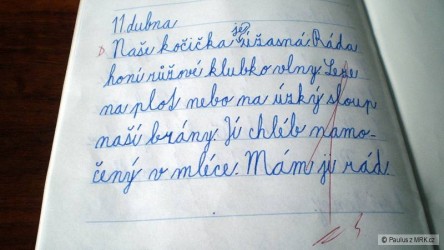 11 dubna
Naše kočička je úžasná. Ráda
honí růžové klubko vlny. Leze
na plot nebo na úzký sloup
naší brány. Jí chléb namo-
čený v mléce. Mám ji rád.
© Paulus z MRK.cz